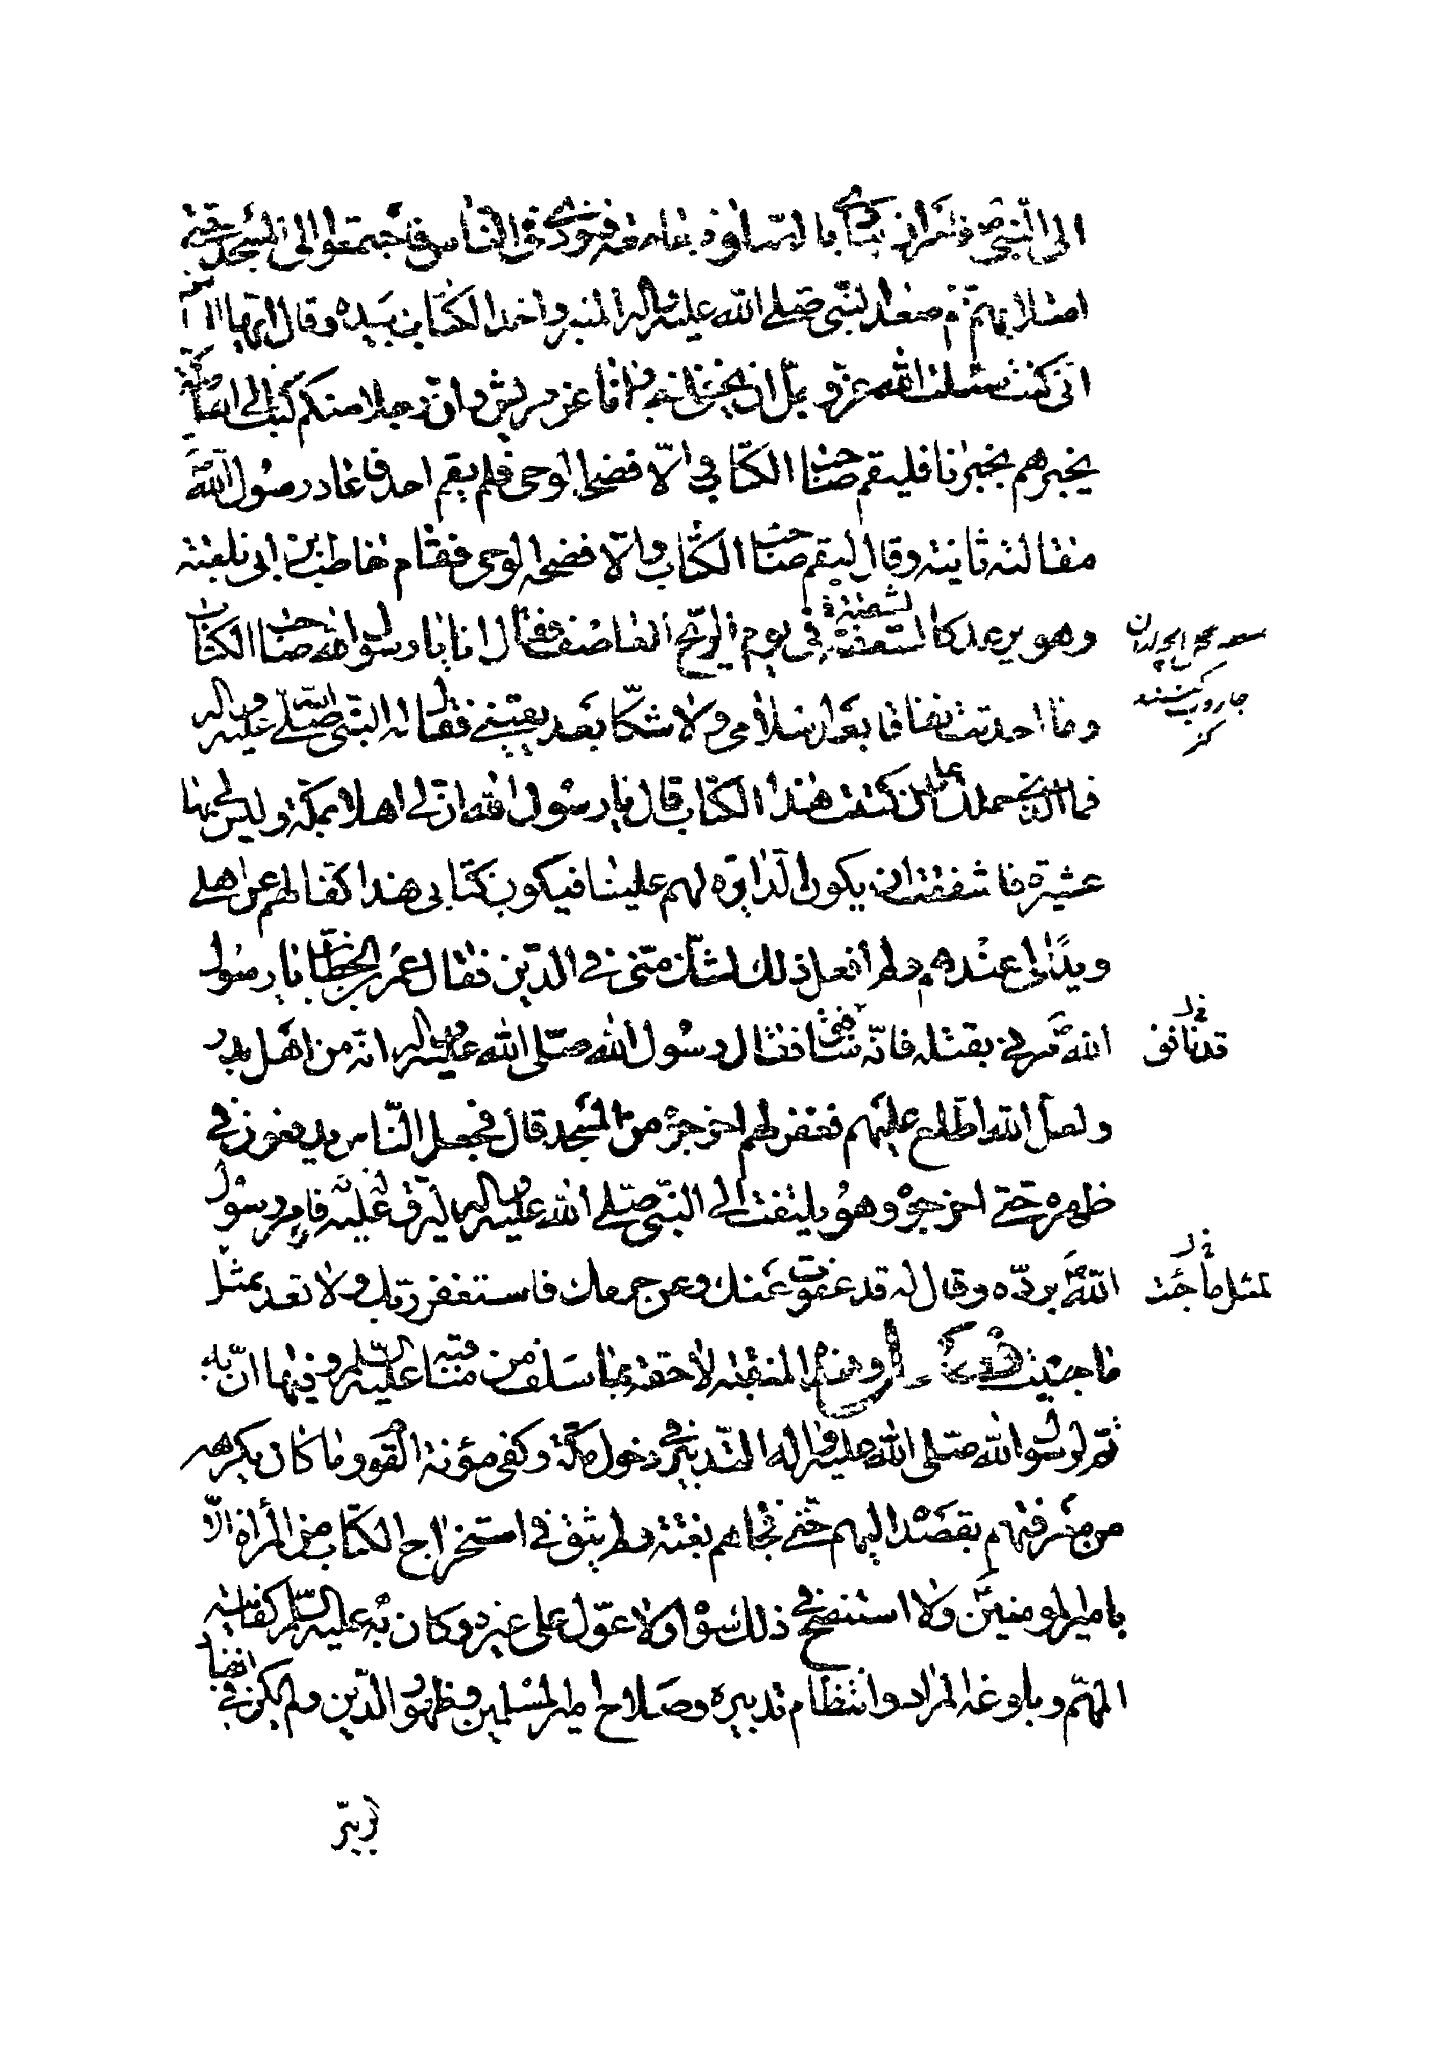 الى النبی ص فامر ان ینادی بالصلوة جامعة فنودی فی الناس فاجتمعوا الی المسجد حتی
امتلا بهم ثم صعد النبی صلی الله علیه واله المنبر واخذ الکتاب بیده وقال ایها الناس
انی کنت سئلت الله عز وجل ان یخفی اخبارنا عن قریش وان رجلا منکم کتب الی اهل مکة
یخبرهم بخبرنا فلیقم صاحب الکتاب والّا فضحه الوحی فلم یقم احد فاعاد رسول الله
مقالته ثانیة وقال لیقم صاحب الکتاب والّا فضحه الوحی فقام حاطب بن ابی بلتعة
وهو یرعد کالسعفة فی یوم الریح العاصف فقال انا یا رسول الله صاحب الکتاب
وما احدثت نفاقا بعد اسلامی ولا شکّا بعد یقینی فقال له النبی صلّی الله علیه واله
فما الذی حملک علی ان کتبت هذا الکتاب قال یا رسول الله انّ لی اهلا بمکة ولیس لی بها
عشیرة فاشفقت ان یکون الدایرة لهم علینا فیکون کتابی هذا کفّا لهم عن اهلی
ویدًا لی عندهم ولم أفعل ذلک لشکّ منّی فی الدین فقال عمر بن الخطاب یا رسول
الله مرنی بقتله فانّه منافق فقال رسول الله صلّی الله علیه واله انه من اهل بدر
ولعل الله اطّلع علیهم فغفر لهم اخرجوه من المسجد قال فجعل النّاس یدفعون فی
ظهره حتی اخرجوه وهو یلتفت الی النبی صلّی الله علیه واله لیرقّ علیه فامر رسول
الله بردّه وقال له قد عفوت عنک وعن جرمک فاستغفر ربّک ولا تعد بمثل
ما جنیت وهذه المنقبة لاحقة بما سلف من مناقبه علیه السلم وفیها انّ به
تمّ لرسول الله صلّی الله علیه واله التدبیر فی دخول مکة وکفی مؤنة القوم وما کان یکرهه
من معرفتهم بقصده الیهم حتی فجاهم بغتة ولم یثق فی استخراج الکتاب من المراة الّا
بامیر المومنین ولا استنصح فی ذلک سواه ولا عوّل علی غیره وکان به علیه السلم کفایته
المهمّ وبلوغه المراد وانتظام تدبیره وصلاح امر المسلمین وظهور الدّین ولم یکن فی انفاذ
جاروب
قد نافق
لمثل ما جئت